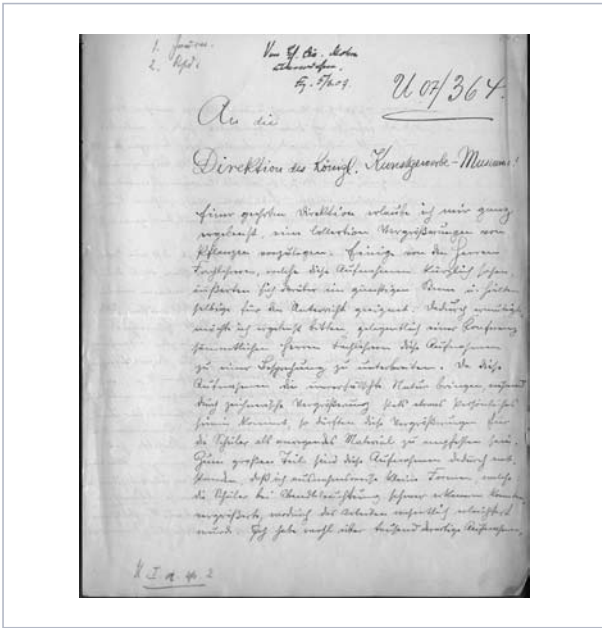 1.
2.
U 07/364.
An die
Direktion des Königl. Kunstgewerbe-Museums!
Einer geehrten Direktion erlaube ich mir ganz
ergebenst, eine Vergrößerungen von
Pflanzen vorzulegen. Einige von den Herren
Fachlehrern, welche diese Aufnahmen kürzlich sahen,
äußerten sich darüber im günstigen Sinne u. hielten
selbige für den Unterricht geeignet. Dadurch ermutigt,
möchte ich ergebenst bitten, gelegentlich einer Konferenz
sämmtlichen Herren Fachlehrern diese Aufnahmen
zu einer Besprechung zu unterbreiten. Da diese
Aufnahmen die unverfälschte Natur bringen, während
durch zeichnerische Vergrößerung stets etwas Persönliches
hinein kommt, so dürften diese Vergrößerungen für
die Schüler als anregendes Material zu empfehlen sein.
Zum großen Teil sind diese Aufnahmen dadurch ent-
standen, daß ich ausnahmsweise kleine Formen, welche
die Schüler bei Abendbeleuchtung schwer erkennen konnten,
vergrößerte, wodurch das Arbeiten wesentlich erleichtert
wurde. Ich habe wohl über tausend derartige Aufnahmen,